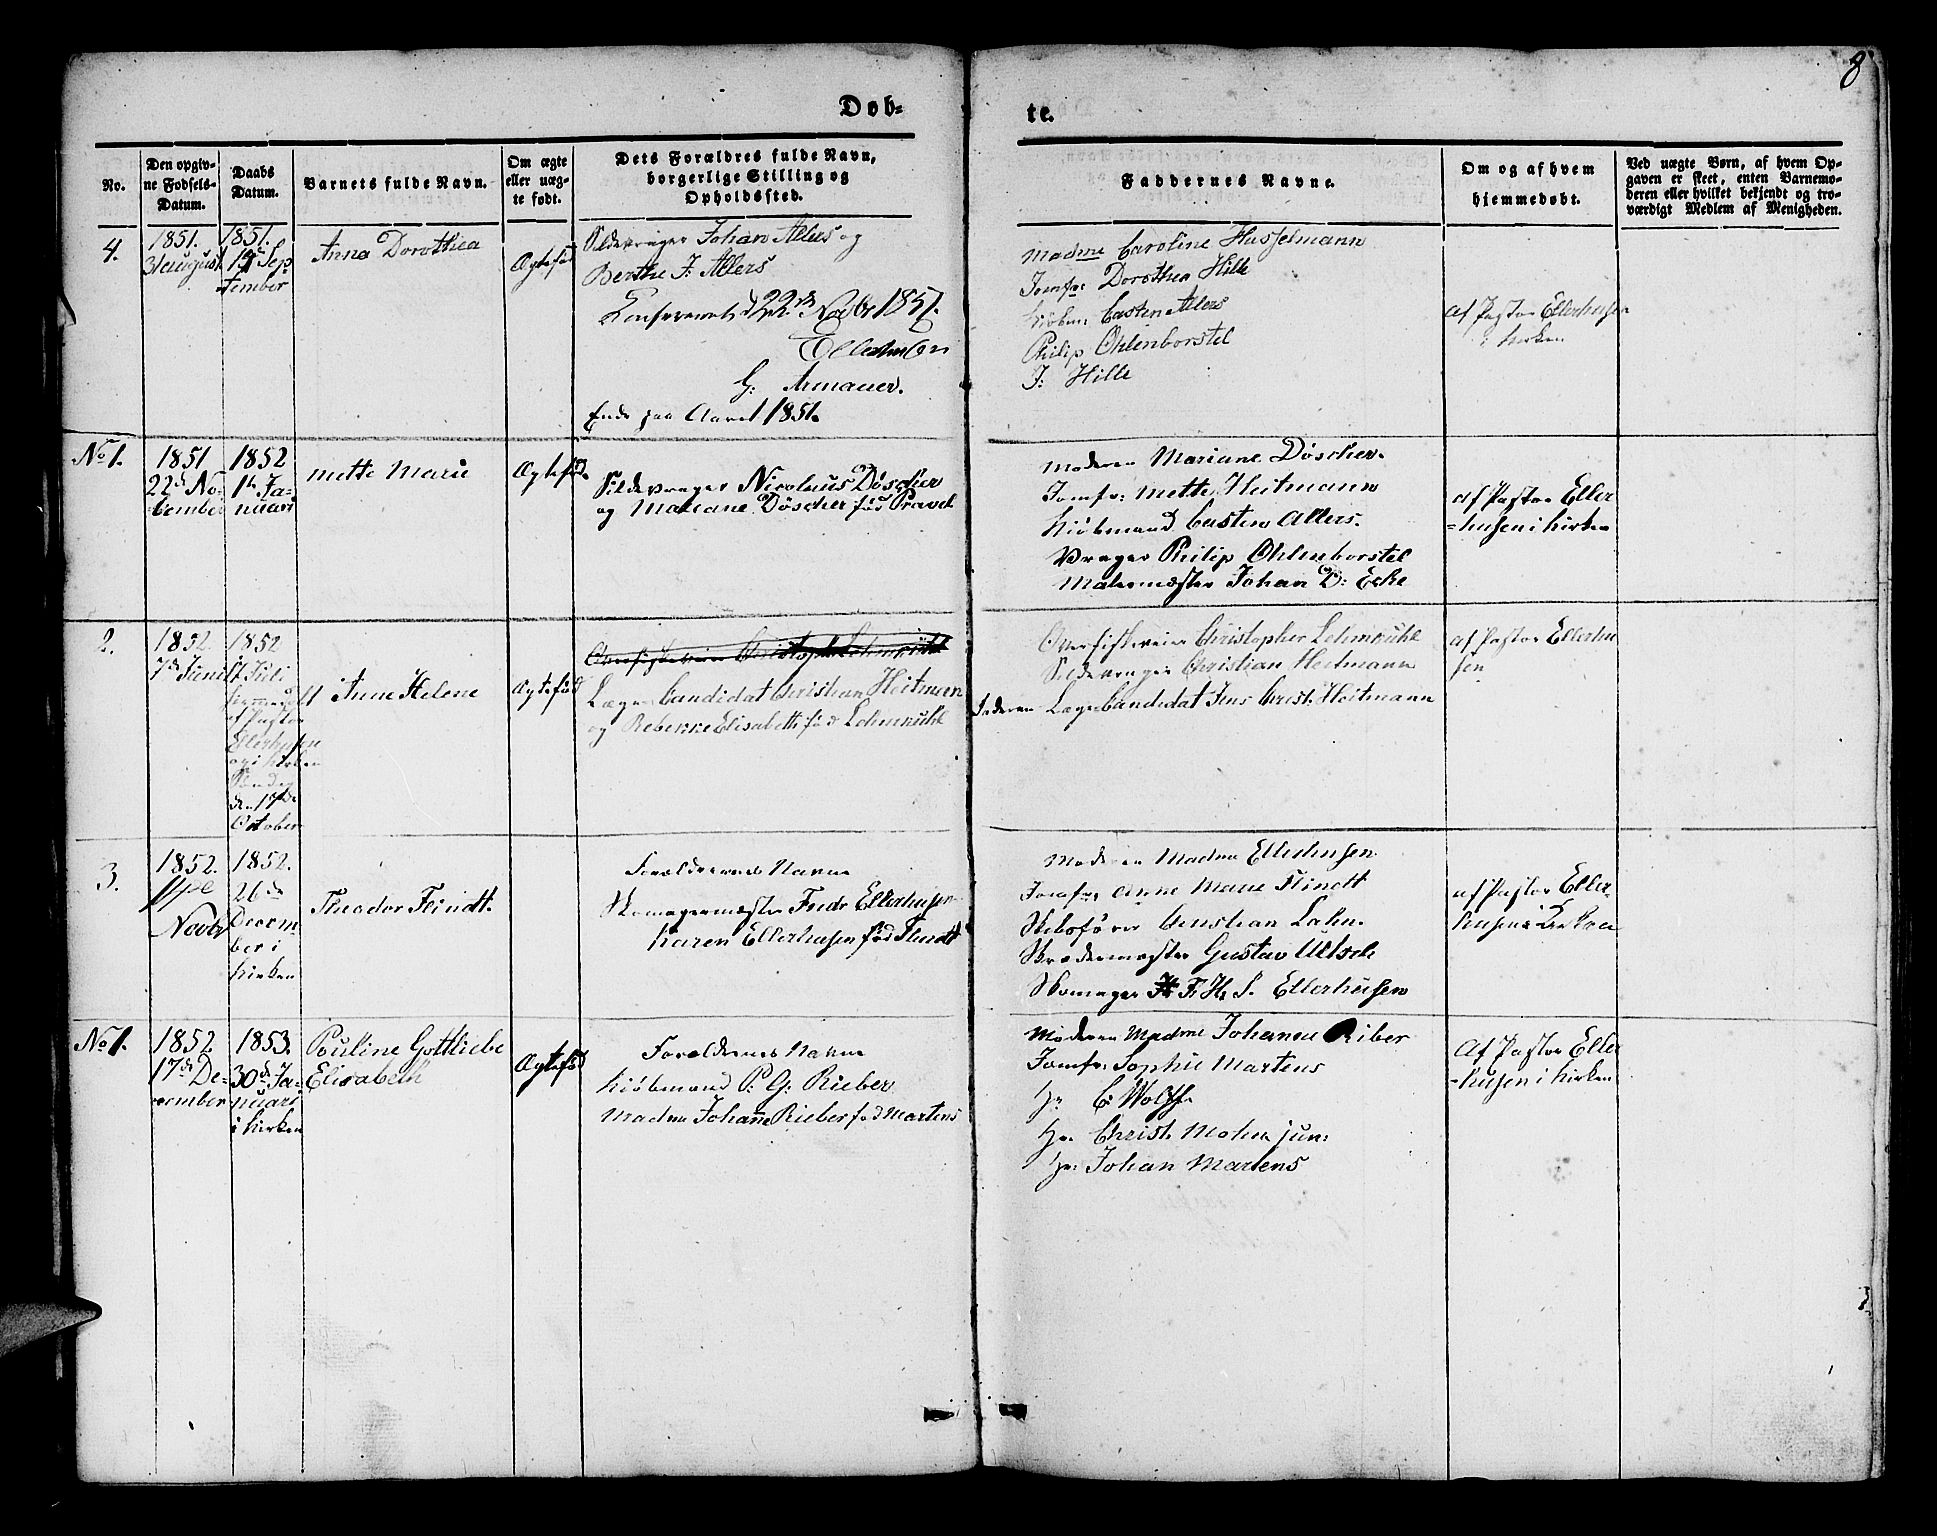 8
Døb-
te.
No.
Den opgiv-
ne Fødsels-
Datum.
Daabs
Datum.
Barnets fulde Navn.
Om ægte
eller uæg-
te født.
Dets Forældres fulde Navn,
borgerlige Stilling og
Opholdssted.
Faddernes Navne.
Om og af hvem
hjemmedøbt.
Ved uægte Børn, af hvem Op-
gaven er skeet, enten Barnemo-
deren eller hvilket bekjendt og tro-
værdigt Medlem af Menigheden.
4.
1851.
31 august
1851.
Sep
tember
Anna Dorothea
Ægtefød
Sildevrager Johan Allers og
Berthe J: Allers
Confereret d 22de Novbr 1851.
Ellerhusen
G: Armauer.
Ende paa Aaret 1851.
Madme Caroline Husselmann
Jomfr: Dorothea Hille
Kiøbm: Casten Allers
Philip Ohlenborstel
J: Hille
af Pastor Ellerhusen
i kirken
No 1.
1851
22de No-
vember
1852
1te Ja-
nuari
Mette Marie
Ægtefød
Sildevrager Nicolaus Döscher
og Mariane Döscher fød Pravel
Moderen Mariane Döscher.
Jomfr: Mette Heitmann
Kiøbmand Casten Allers.
Vrager Philip Ohlenborstel
Malermester Johan D: Eske
af Pastor Eller
=husen i kirken
2.
1852.
7de Juni
1852
Juli
hjemmedøbt
af Pastor
Ellerhusen
og i kirken
Søndag
den 17de
October
Anne Helene
Ægtefød
Christoph Lehmkuhl
Læge Candidat Christian Heitmann
og Rebekke Elisabeth fød Lehmkuhl
Christopher Lehmkuhl
Sildevrager Christian Heitmann
Faderen Læge Candidat Jens Christ. Heitmann
af Pastor Ellerhu
sen
3.
1852.
Novbr
1852.
26de
Decem
ber i
kirken
Theodor Flindt.
Forældrenes Navne
Skomagermester Fredr Ellerhusen
Karen Ellerhusen fød Flindt
Moderen Madme Ellerhusen
Jomfr: Anne Marie Flindt
Skibsfører Christian Lahn.
Skrædermester Gustav Ultsch
Skomager F. H. S. Ellerhusen
af Pastor Eller
husen i Kirken
No 1.
1852
17de De-
cember
1853.
30de Ja-
nuari
i kirken
Pauline Gottliebe
Elisabeth
Ægtefød
Forældrenes Navne
Kiøbmand P: G: Rieber
Madme Johanne Rieber fød Martens
Moderen Madme Johanne Riber
Jomfr: Sophie Martens
Hr C: Wolff
Hr. Christ. Mohn jun:
Hr: Johan Martens
Af Pastor Eller
-husen i kirken